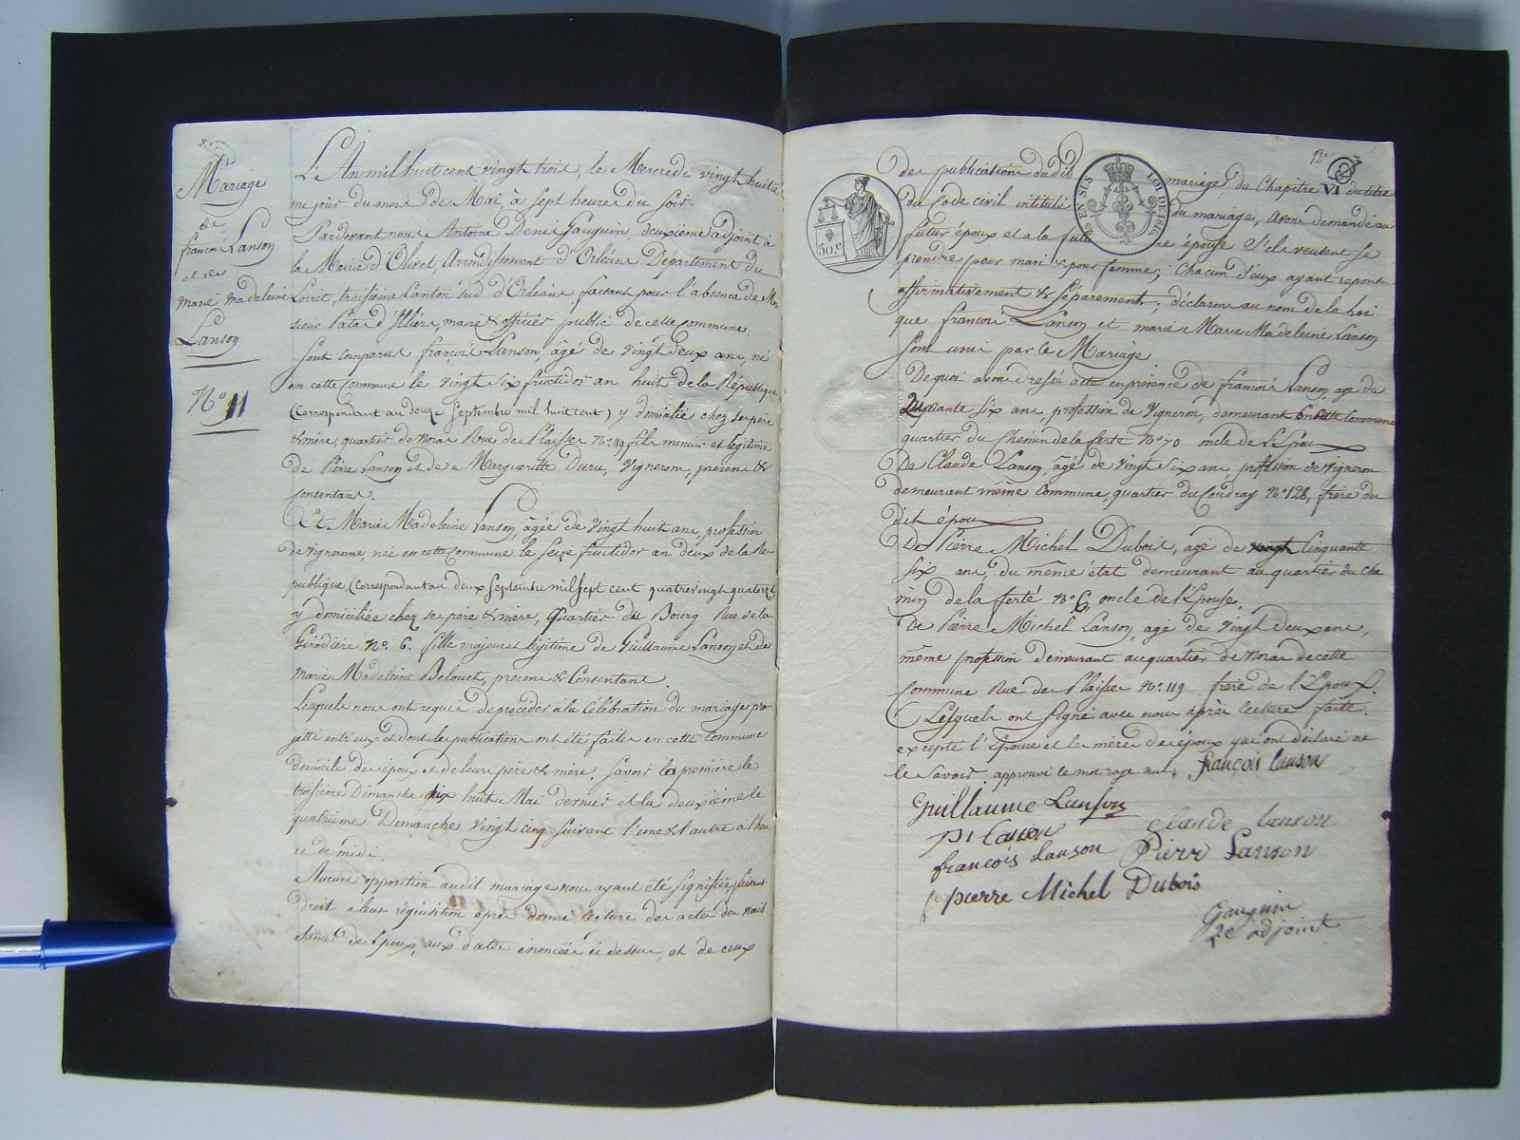 Mariage
de
francois Lanson
et de
marie madeleine
Lanson
N° 11
L'An mil huit cent vingt trois, le Mercredi vingt huitie
me jour du mois de Mai, à sept heures du soir.
Pardevant nous Antoine Denis Gauguin, deuxième adjoint à
la Mairie d'Olivet, Arrondissement d'Orléans Département du
Loiret, troisième Canton sud d'Orléans faisant pour l'absence de Mon
sieur Pata d'Illiers, maire & officier public de cette commune
Sont comparus françois Lanson, âgé de vingt deux ans, né
en cette Commune le vingt six fructidor an huit de la République
(Correspondant au douze Septembre mil huit cent) y domicilié chez ses père
& mère, quartier de Rue des Plaisse N° 119 fils mineur et légitime
de Pierre Lanson et de Margueritte Duru, Vignerons, présens &
consentans.
Et Marie Madeleine Lanson, âgée de vingt huit ans, profession
de vigneronne, née en cette Commune le Seize fructidor an deux de la Ré
publique (Correspondant au deux Septembre mil sept cent quatrevingt quatorze)
y domiciliée chez ses père & mère, quartier du Bourg Rue de la
Girodière N° 6. fille majeure et légitime de Guillaume Lanson et de
Marie Madeleine Belouet, présens & Consentans.
Lesquels nous ont requis de procéder à la Célébration du mariage pro
jetté entr'eux et dont les publications ont été faites en cette Commune
domicile des époux et de leurs père & mère, Savoir la première le
troisième Dimanche dix huit Mai dernier et la deuxième le
quatrième Dimanche vingt cinq suivant l'une & l'autre à l'heu
re de midi.
Aucune opposition audit mariage nous ayant été signifiée, faisant
droit à leur réquisition après donné lecture des actes de nais
sance des Epoux, aux dates énoncées ci dessus, et de ceux
de publications dudit mariage, du Chapitre VI du titre
du Code civil intitulé du mariage, avons demandé au
futur époux et à la future épouse s'ils veulent se
prendre pour mari & pour femme; Chacun d'eux ayant répondu
affirmativement & séparement, déclarons au nom de la loi
que francois Lanson et Marie Madeleine Lanson
Sont unis par le Mariage
De quoi avons dressé acte en présence de francois Lanson, age de
six ans, profession de Vigneron, demeurant en cette Commune
quartier du Chemin de la ferté N° 70 oncle de l'Epoux
De Claude Lanson, âgé de vingt six ans, profession de vigneron
demeurant même Commune, quartier du Coudray N° 128, frère du
dit époux
De Pierre Michel Dubois, agé de vingt Cinquante
six ans, du même état demeurant au quartier du Che
min de la ferté N° 6, oncle de l'Epouse.
De Pierre Michel Lanson, agé de vingt deux ans,
même profession demeurant au quartier de de cette
Commune Rue des Plaisse N° 119 frère de l'Epoux.
Lesquels ont signé avec nous après lecture faite.
excepté l'épouse et les mères des époux qui ont déclaré ne
le savoir. approuvé le mot rayé nul. francois lanson
Guillaume Lanson
claude lanson
francois Lanson
Pierr Lanson
pierre Michel Dubois
Gauguin
2e adjoint